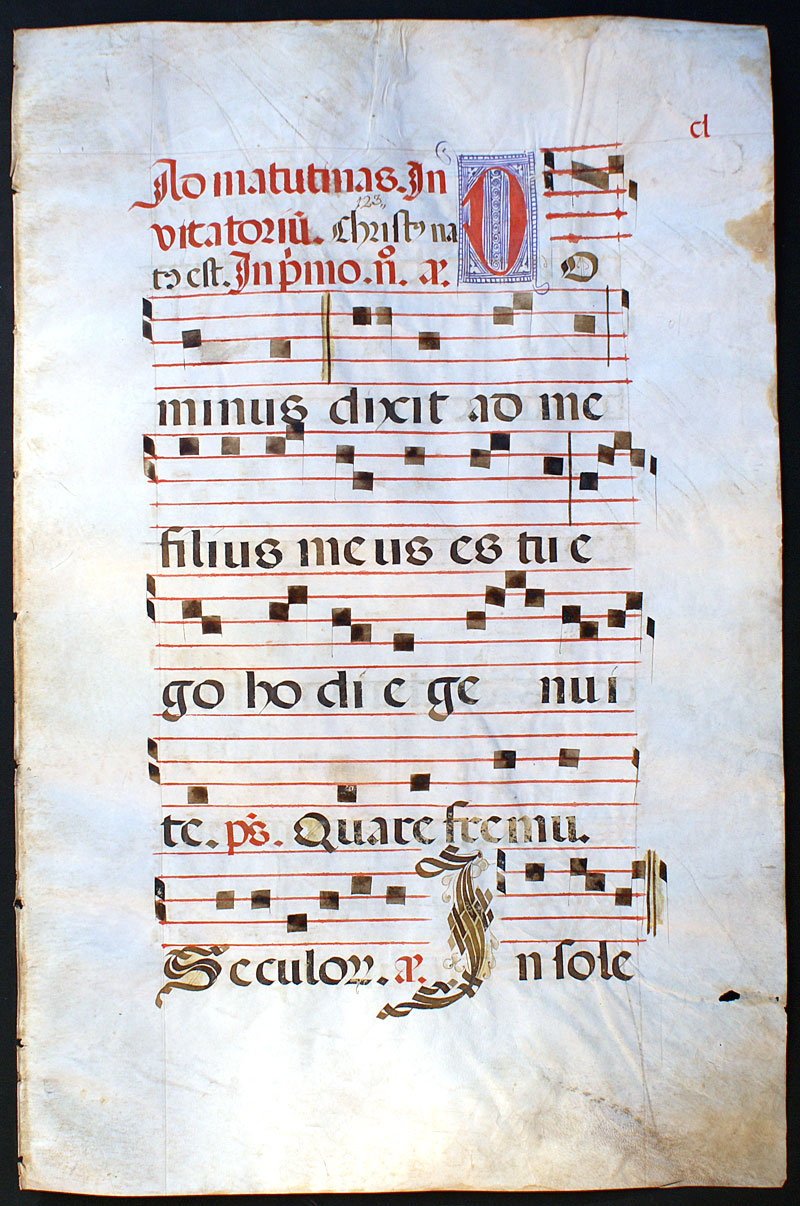 cl
Ad matutinas. In
vitatoriū. Christꝰ na
123,
tꝰ est. In pͥmo. nͦ. añ.
D o
minus dixit ad me
filius meus es tu e
go ho di e ge nui
te. ps. Quare fremu.
Seculoꝝ. añ. In sole